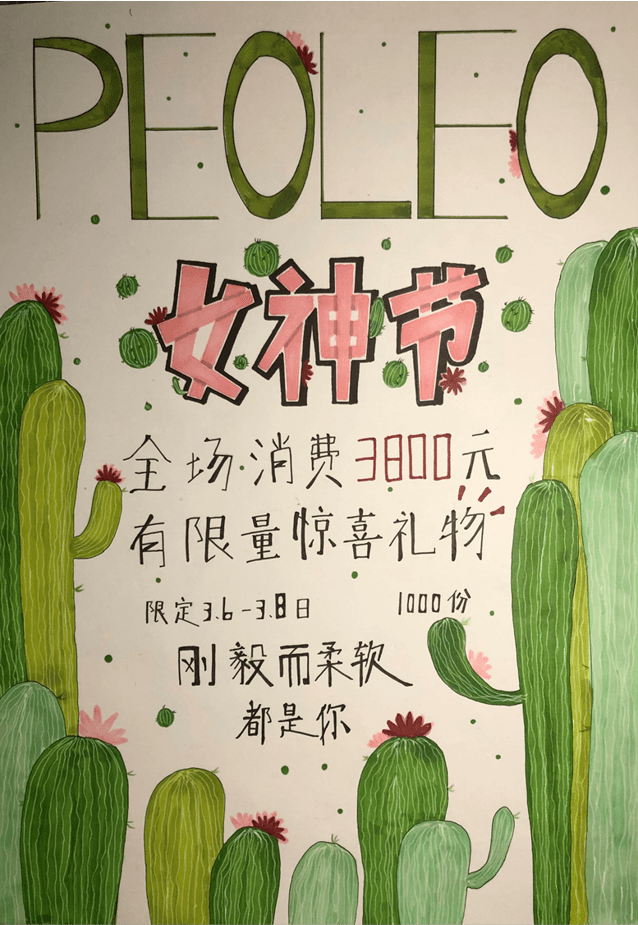 PEOLEO
女神节
全场消费3800元
有限量惊喜礼物
限定3.6-3.8日 1000份
刚毅而柔软
都是你